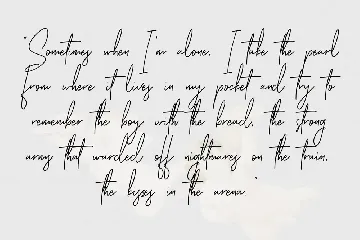 "Sometimes when I'm alone, I take the pearl
from where it lives in my pocket and try to
remember the boy with the bread, the strong
arms that warded off nightmares on the train,
the kisses in the arena."